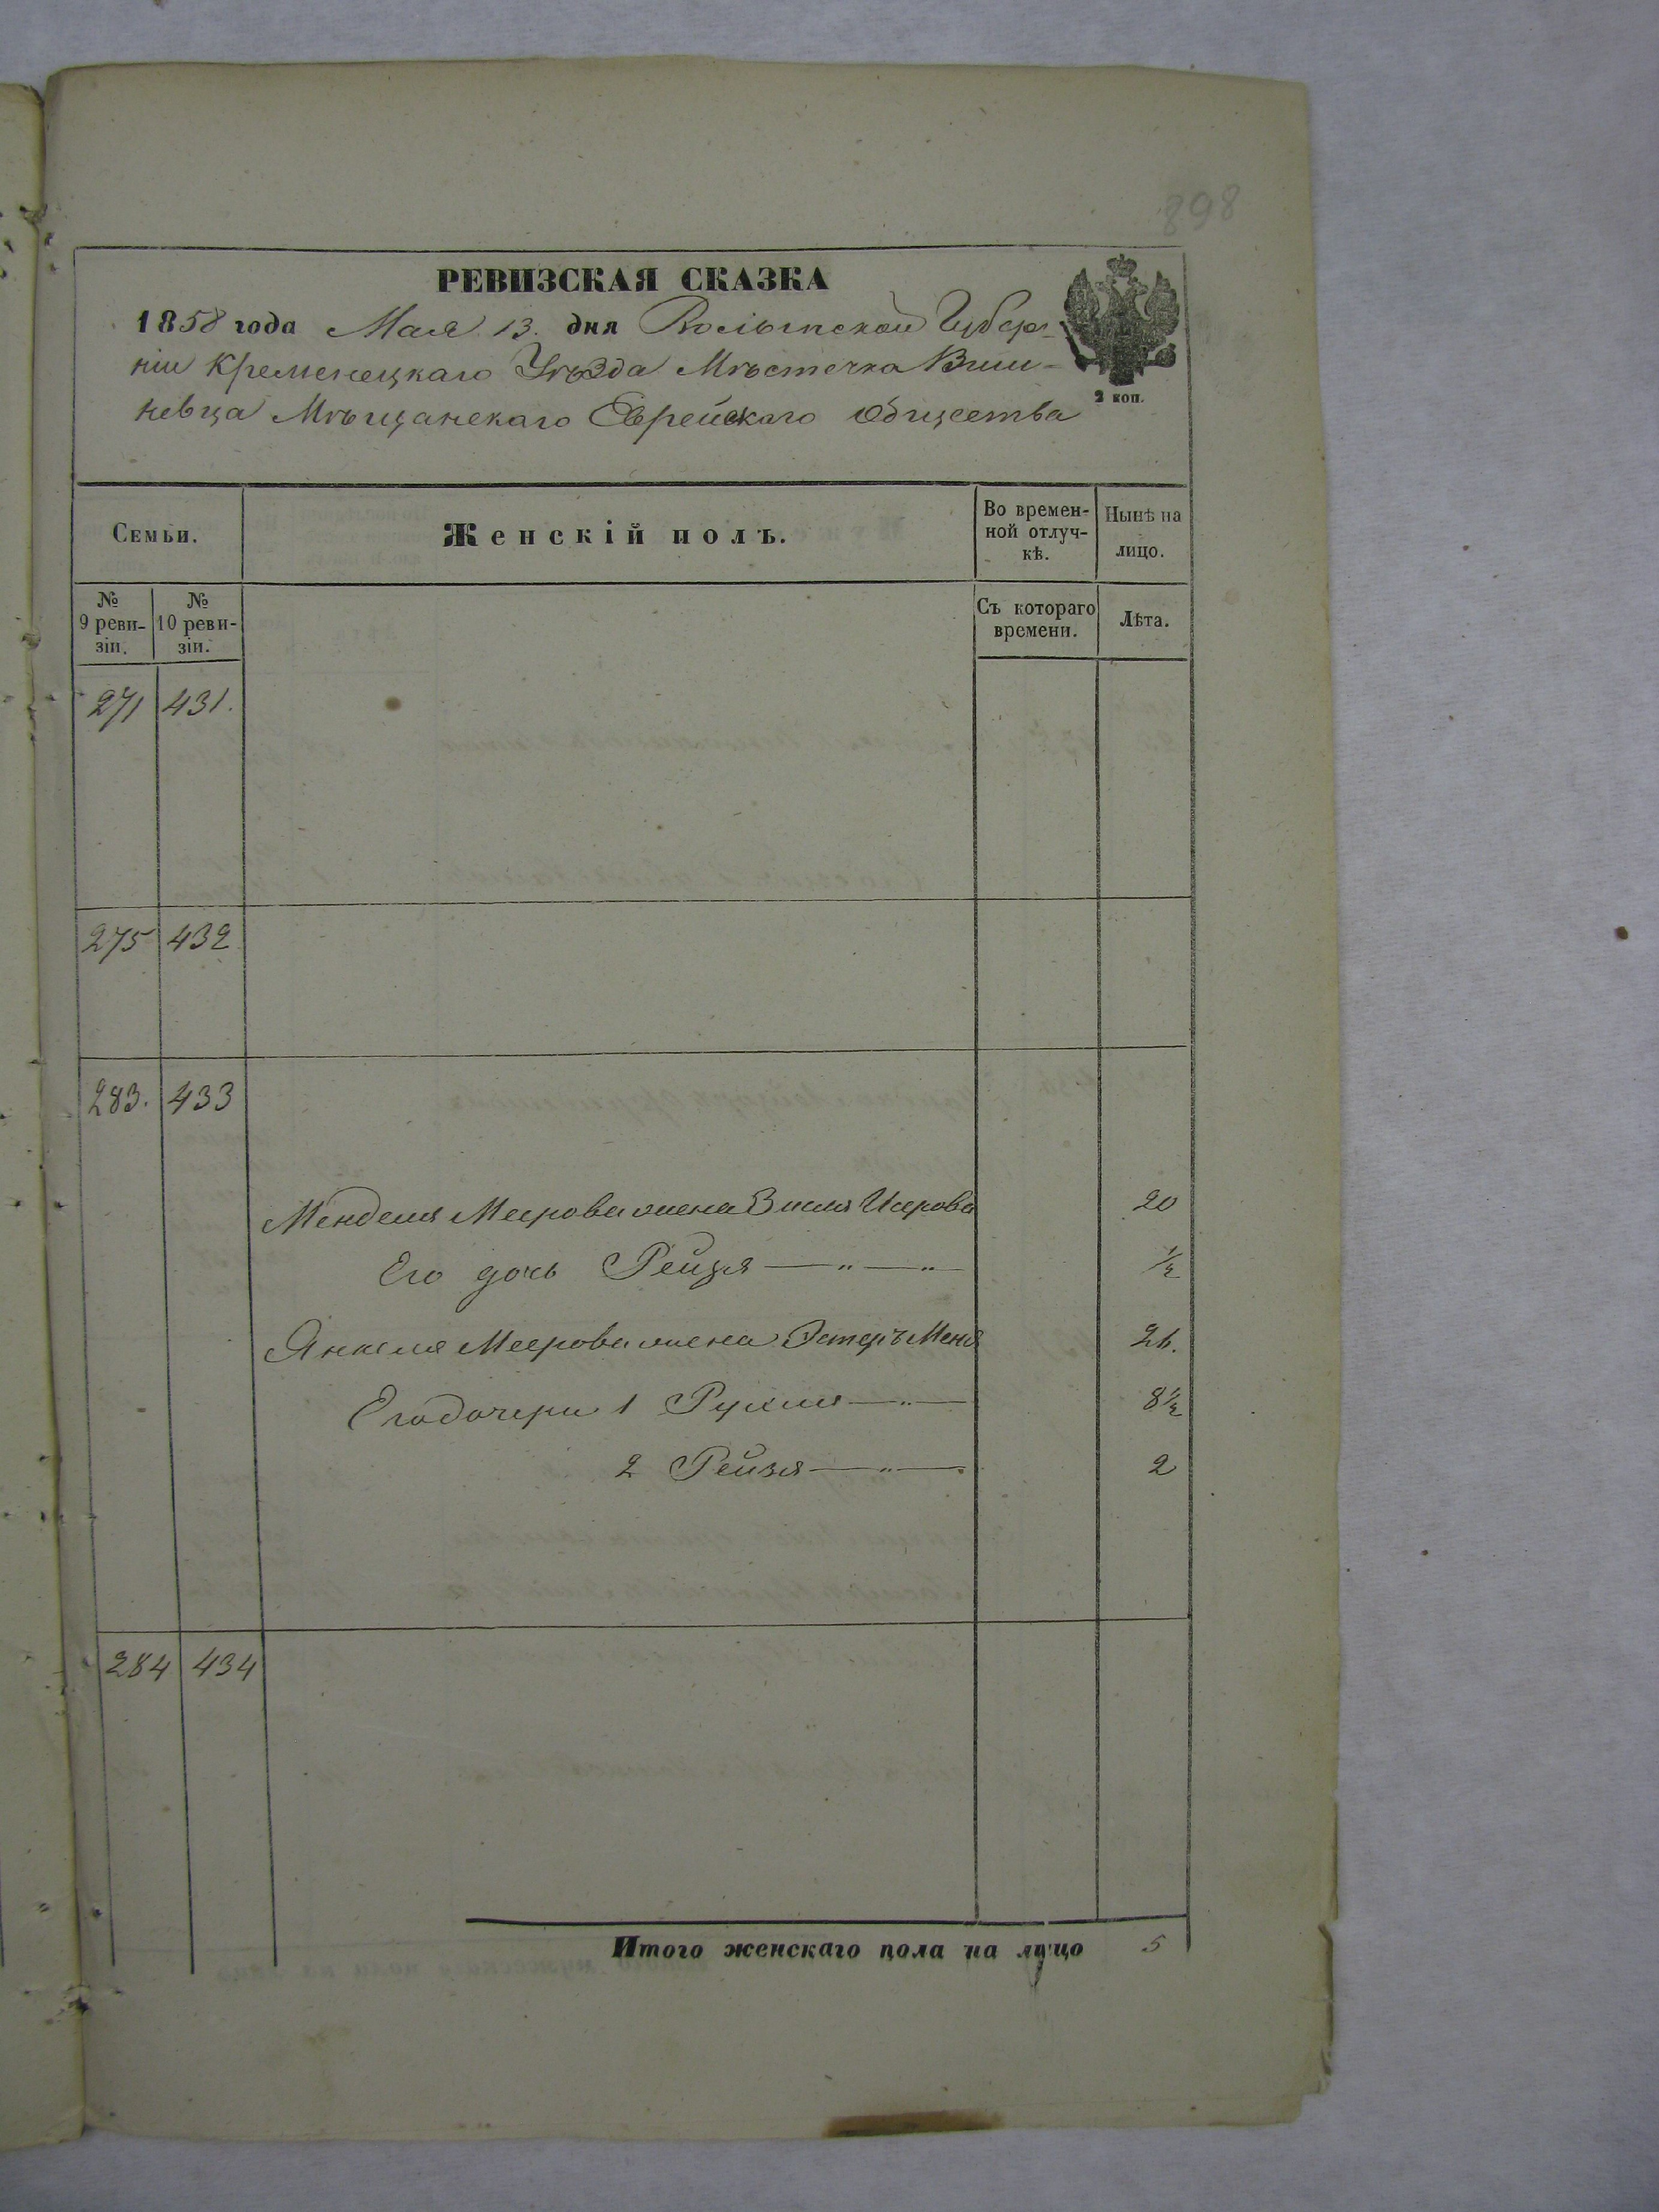 898
РЕВИЗСКАЯ СКАЗКА
1858 года Мая 13. дня Волынской Губер-
ніи Кременецкаго Уѣзда Мѣстечка Виш-
невца Мѣщанскаго Еврейскаго Общества
2 коп.
Семьи.
Женскій полъ.
Во времен-
ной отлуч-
кѣ.
Нынѣ на
лицо.
№
9 реви-
зіи.
№
10 реви-
зіи.
Съ котораго
времени.
Лѣта.
271 431.
275 432
283. 433
Менделя Меерова жена Зисля Иcерова 20
Его дочь Рейзя — „ — „ ½
Янкеля Меерова жена Эстеръ Меня 26.
Его дочери 1 Рухля — „ — 8½
2 Рейзя — „ — 2
284 434
Итого женскаго пола на лицо 5